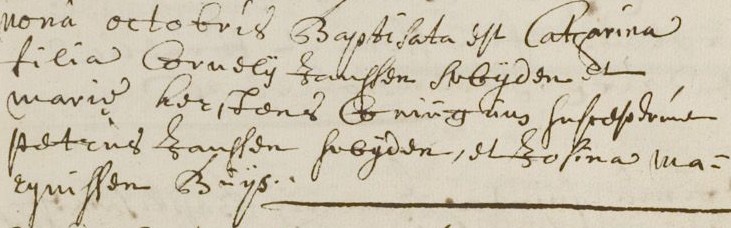 nona octobris Baptisata est Catharina
filia Cornelij Janssen sobijden et
Marie Kerstens Coniugum susceperunt
Petrus Janssen sobijden, et Josina Ma=
rynissen Buijs..